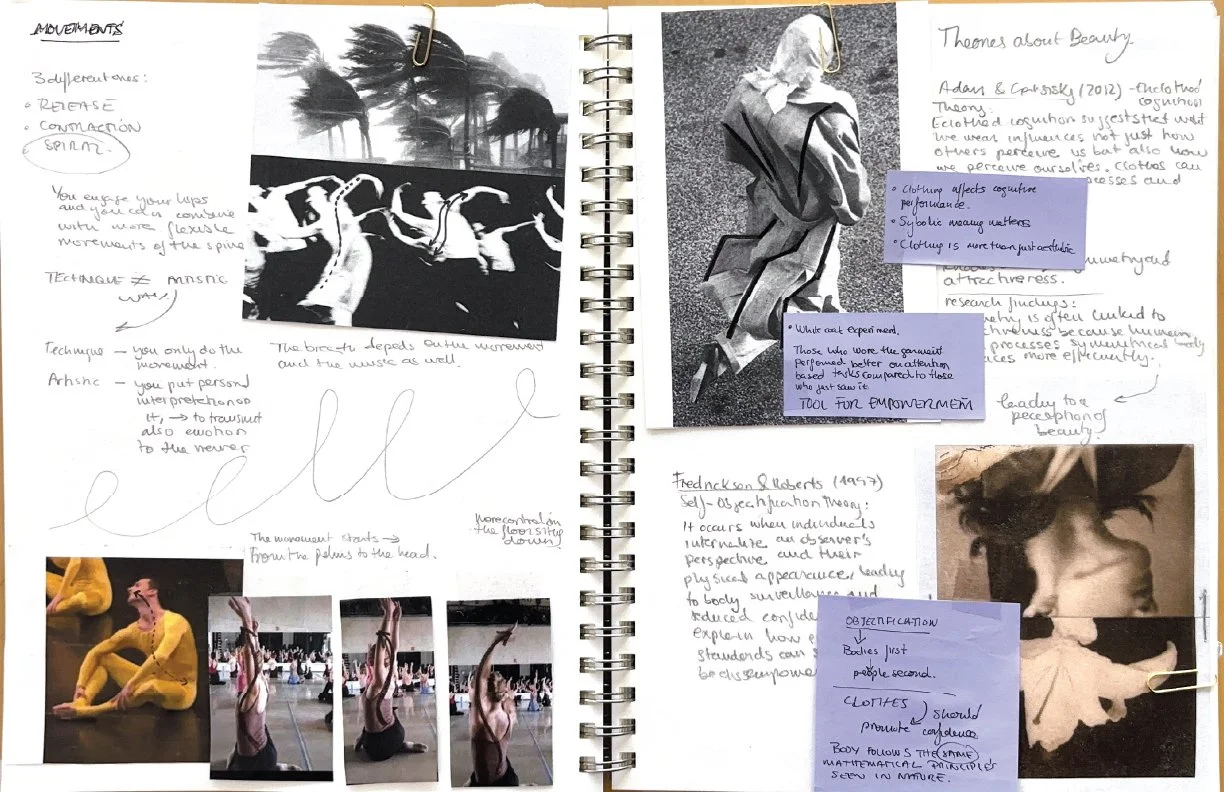 MOVEMENTS
3 different ones:
• RELEASE
• CONTRACTION
SPIRAL
You engage your hips
and you can combine
with more flexible
movements of the spine
TECHNIQUE ≠ ARTISTIC
WAY
Technique — you only do the
movement.
Artistic — you put personal
interpretation to
it, → to transmit
also emotion
to the viewer
The breath depeds on the movement
and the music as well.
The movement starts →
From the palms to the head.
more control in
the floor
down
Theories about Beauty
Adam & (2012) - Enclothed
cognition
Theory:
Eclothed cognition suggests that what
we wear influences not just how
others perceive us but also how
we perceive ourselves. Clothes can
processes and
• Clothing affects cognitive
performance.
• Symbolic meaning matters
• Clothing is more than just aesthetic
symmetry and
attractiveness.
research findings:
is often linked to
because humans
processes symmetrical
more efficiently.
leading to a
perception of
beauty.
• White coat experiment.
Those who wore the garment
performed better on attention
based tasks compared to those
who just saw it.
TOOL FOR EMPOWERMENT
Fredrickson & Roberts (1997)
Self-Objectification Theory:
It occurs when individuals
internalize an observer's
perspective and their
physical appearance, leading
to body surveillance and
reduced
explain how
standards can
be
OBJECTIFICATION
↓
Bodies first
↓
people second.
CLOTHES should
promote confidence
BODY FOLLOWS THE SAME
MATHEMATICAL PRINCIPLES
SEEN IN NATURE.